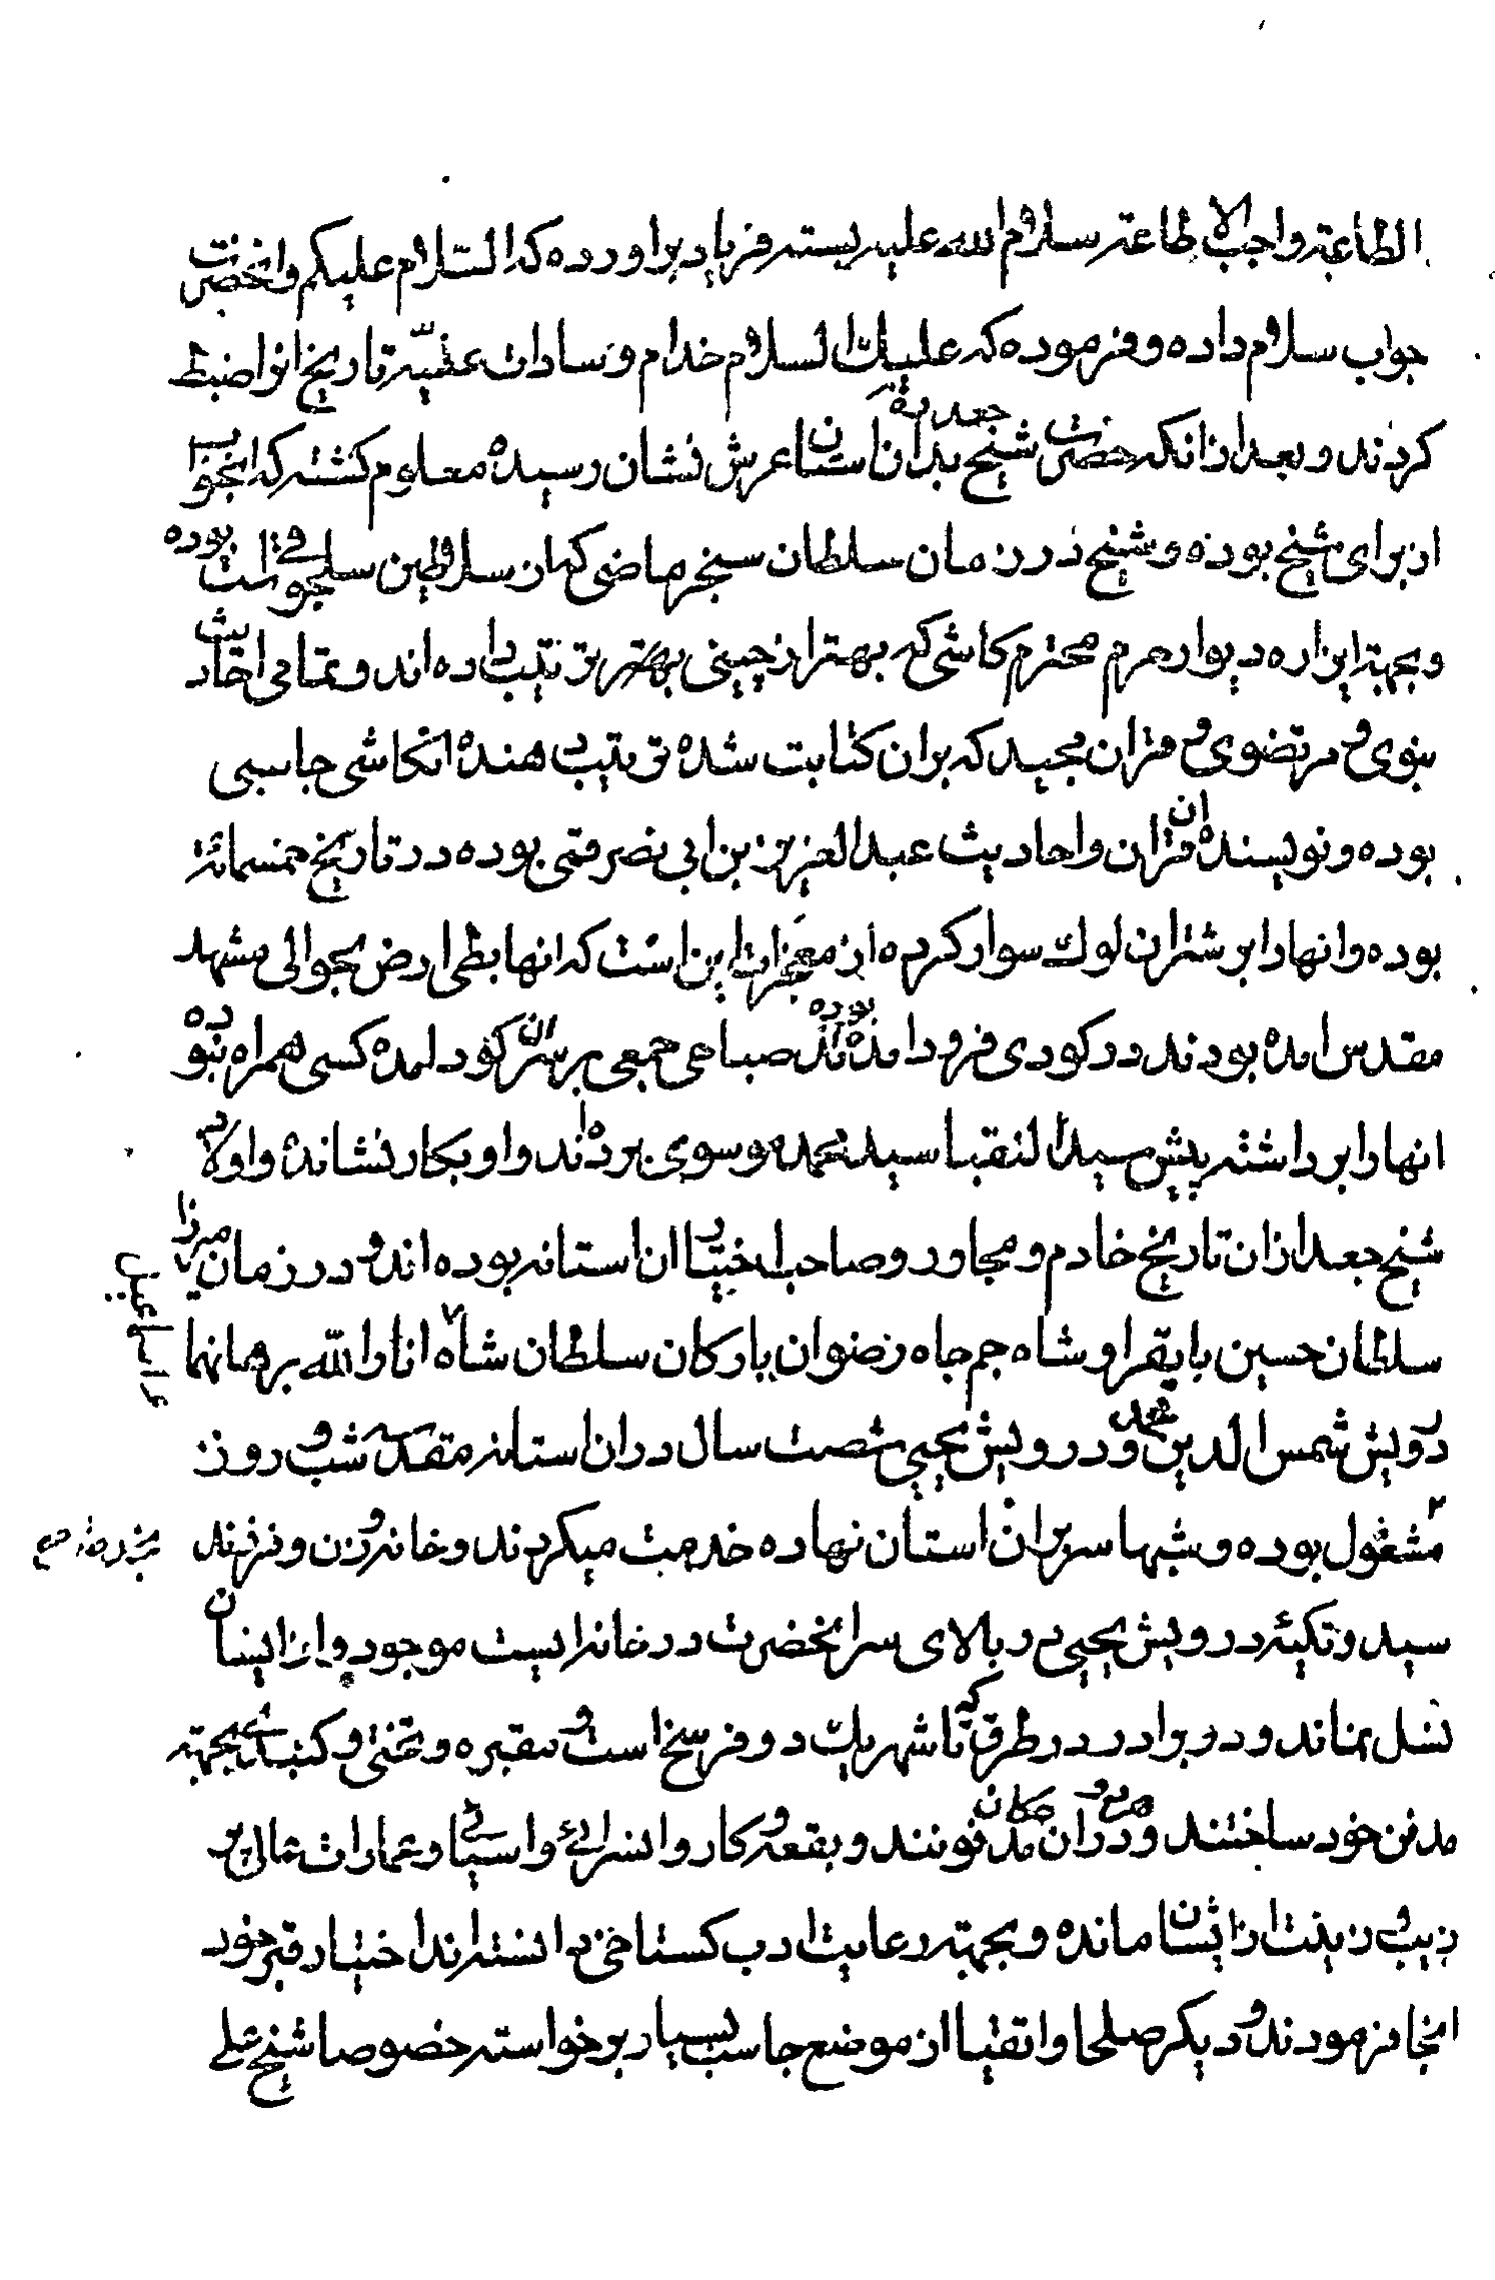 الطاعة واجب الاطاعة سلام الله عليه بسته فریاد براورده که السلام علیکم وانحضرت
جواب سلام داده وفرموده که علیک السلام خدام وسادات عتبه تاریخ انرا ضبط
کردند وبعد ازانکه حضرت شیخ بدان استان عرش نشان رسیده معلوم کشته که انجواب
از برای شیخ بوده وشیخ در زمان سلطان سنجر ماضی که از سلاطین سلجوقی است بوده
وبجهة ازاره دیوار حرم محترم کاشی که بهتر از چینی ترتیب داده اند وتمامی احادیث
نبوی و مرتضوی و قران مجید که بران کتابت شده ترتیب دهنده انکاشی جاسبی
بوده ونویسنده ان قران واحادیث عبد العزیز بن ابی نصر قمی بوده در تاریخ خمسمائة
بوده وانها را بر شتران لوک سوار کرده از معجزات این است که انها بطی ارض بحوالی مشهد
مقدس امده بودند در کودی فرود امده بوده اند صباحی جمعی بر سر ان کود امده کسی همراه نبوده
انها را برداشته پیش سید النقبا سید محمد موسوی برده اند واو بکار نشانده واولاد
شیخ بعد ازان تاریخ خادم ومجاور وصاحب اختیار ان استانه بوده اند و در زمان میرزا
سلطان حسین بایقرا و شاه جم جاه رضوان بارکان سلطان شاه انار الله برهانهما
درویش شمس الدین محمد و درویش یحیی شصت سال دران استانه مقدسه شب و روز
مشغول بوده وشبها سر بران استان نهاده خدمت میکردند وخانه و زن و فرزند
سید وتکیه درویش یحیی در بالای سر انحضرت در خانه ایست موجود واز ایشان
نسل نماند ودو برادر در طرق که تا شهر یک دو فرسخ است و مقبره و تختی و کنبدی بجهته
مدفن خود ساختند ودران مکان مدفونند وبقعه و کاروانسرای واسیا وعمارات عالی پر
زیب و زینت از ایشان مانده و بجهة رعایت ادب کستاخی ندانسته اند اختیار قبر خود
انجا نفرمودند و دیکر صلحا واتقیا از موضع جاسب بسیار برخواسته خصوصا شیخ علی